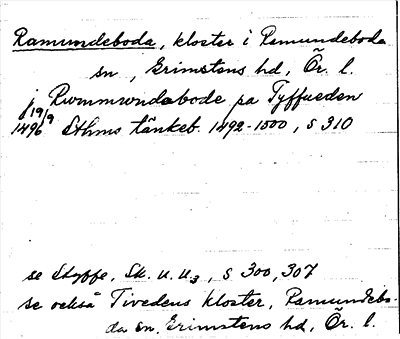 Ramundeboda, kloster i Ramundeboda
sn, Grimstens hd, Ör. l.
j Rwmmwndabode pa Tyffueden
19/9
1496 Sthms tänkeb. 1492-1500, s 310
se Styffe, Sk. u. u3, s 300, 307
se också Tivedens kloster, Ramundebo-
da sn, Grimstens hd, Ör. l.